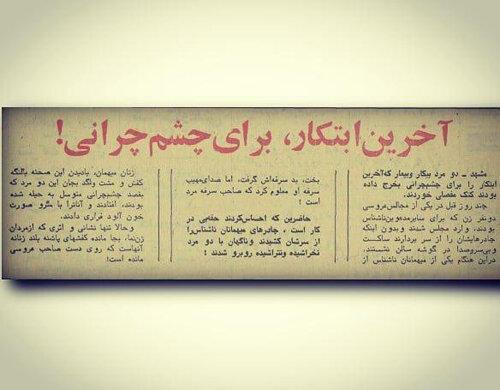 آخرین ابتکار، برای چشم چرانی!
مشهد ـ دو مرد بیکار وبیعار که‌آخرین
ابتکار را برای چشمچرانی بخرج داده
بودند کتک مفصلی خوردند.
چند روز قبل در یکی از مجالس‌عروسی
دونفر زن که برای سایرمدعوین‌ناشناس
بودند، وارد مجلس شدند وبدون اینکه
چادرهایشان را از سر بردارند ساکت
وبی‌سروصدا در گوشه سالن نشستند.
دراین هنگام یکی از میهمانان ناشناس از
بخت، بد سرفه‌اش گرفت، اما صدای‌مهیب
سرفه او معلوم کرد که صاحب سرفه مرد
است !
حاضرین که احساس‌کردند حقه‌یی در
کار است ، چادرهای میهمانان ناشناس‌را
از سرشان کشیدند وناگهان با دو مرد
نخراشیده ونتراشیده روبرو شدند !
زنان میهمان، بادیدن این صحنه بالنگه
کفش و مشت ولگد بجان این دو مرد که
بقصد چشمچرانی متوسل به حیله شده
بودند، افتادند و آنانرا با سرو صورت
خون آلود فراری دادند.
وحالا تنها نشانی و اثری که ازمردان
زن‌نما، بجا مانده کفشهای پاشنه بلند زنانه
آنهاست که روی دست صاحب عروسی
مانده است!